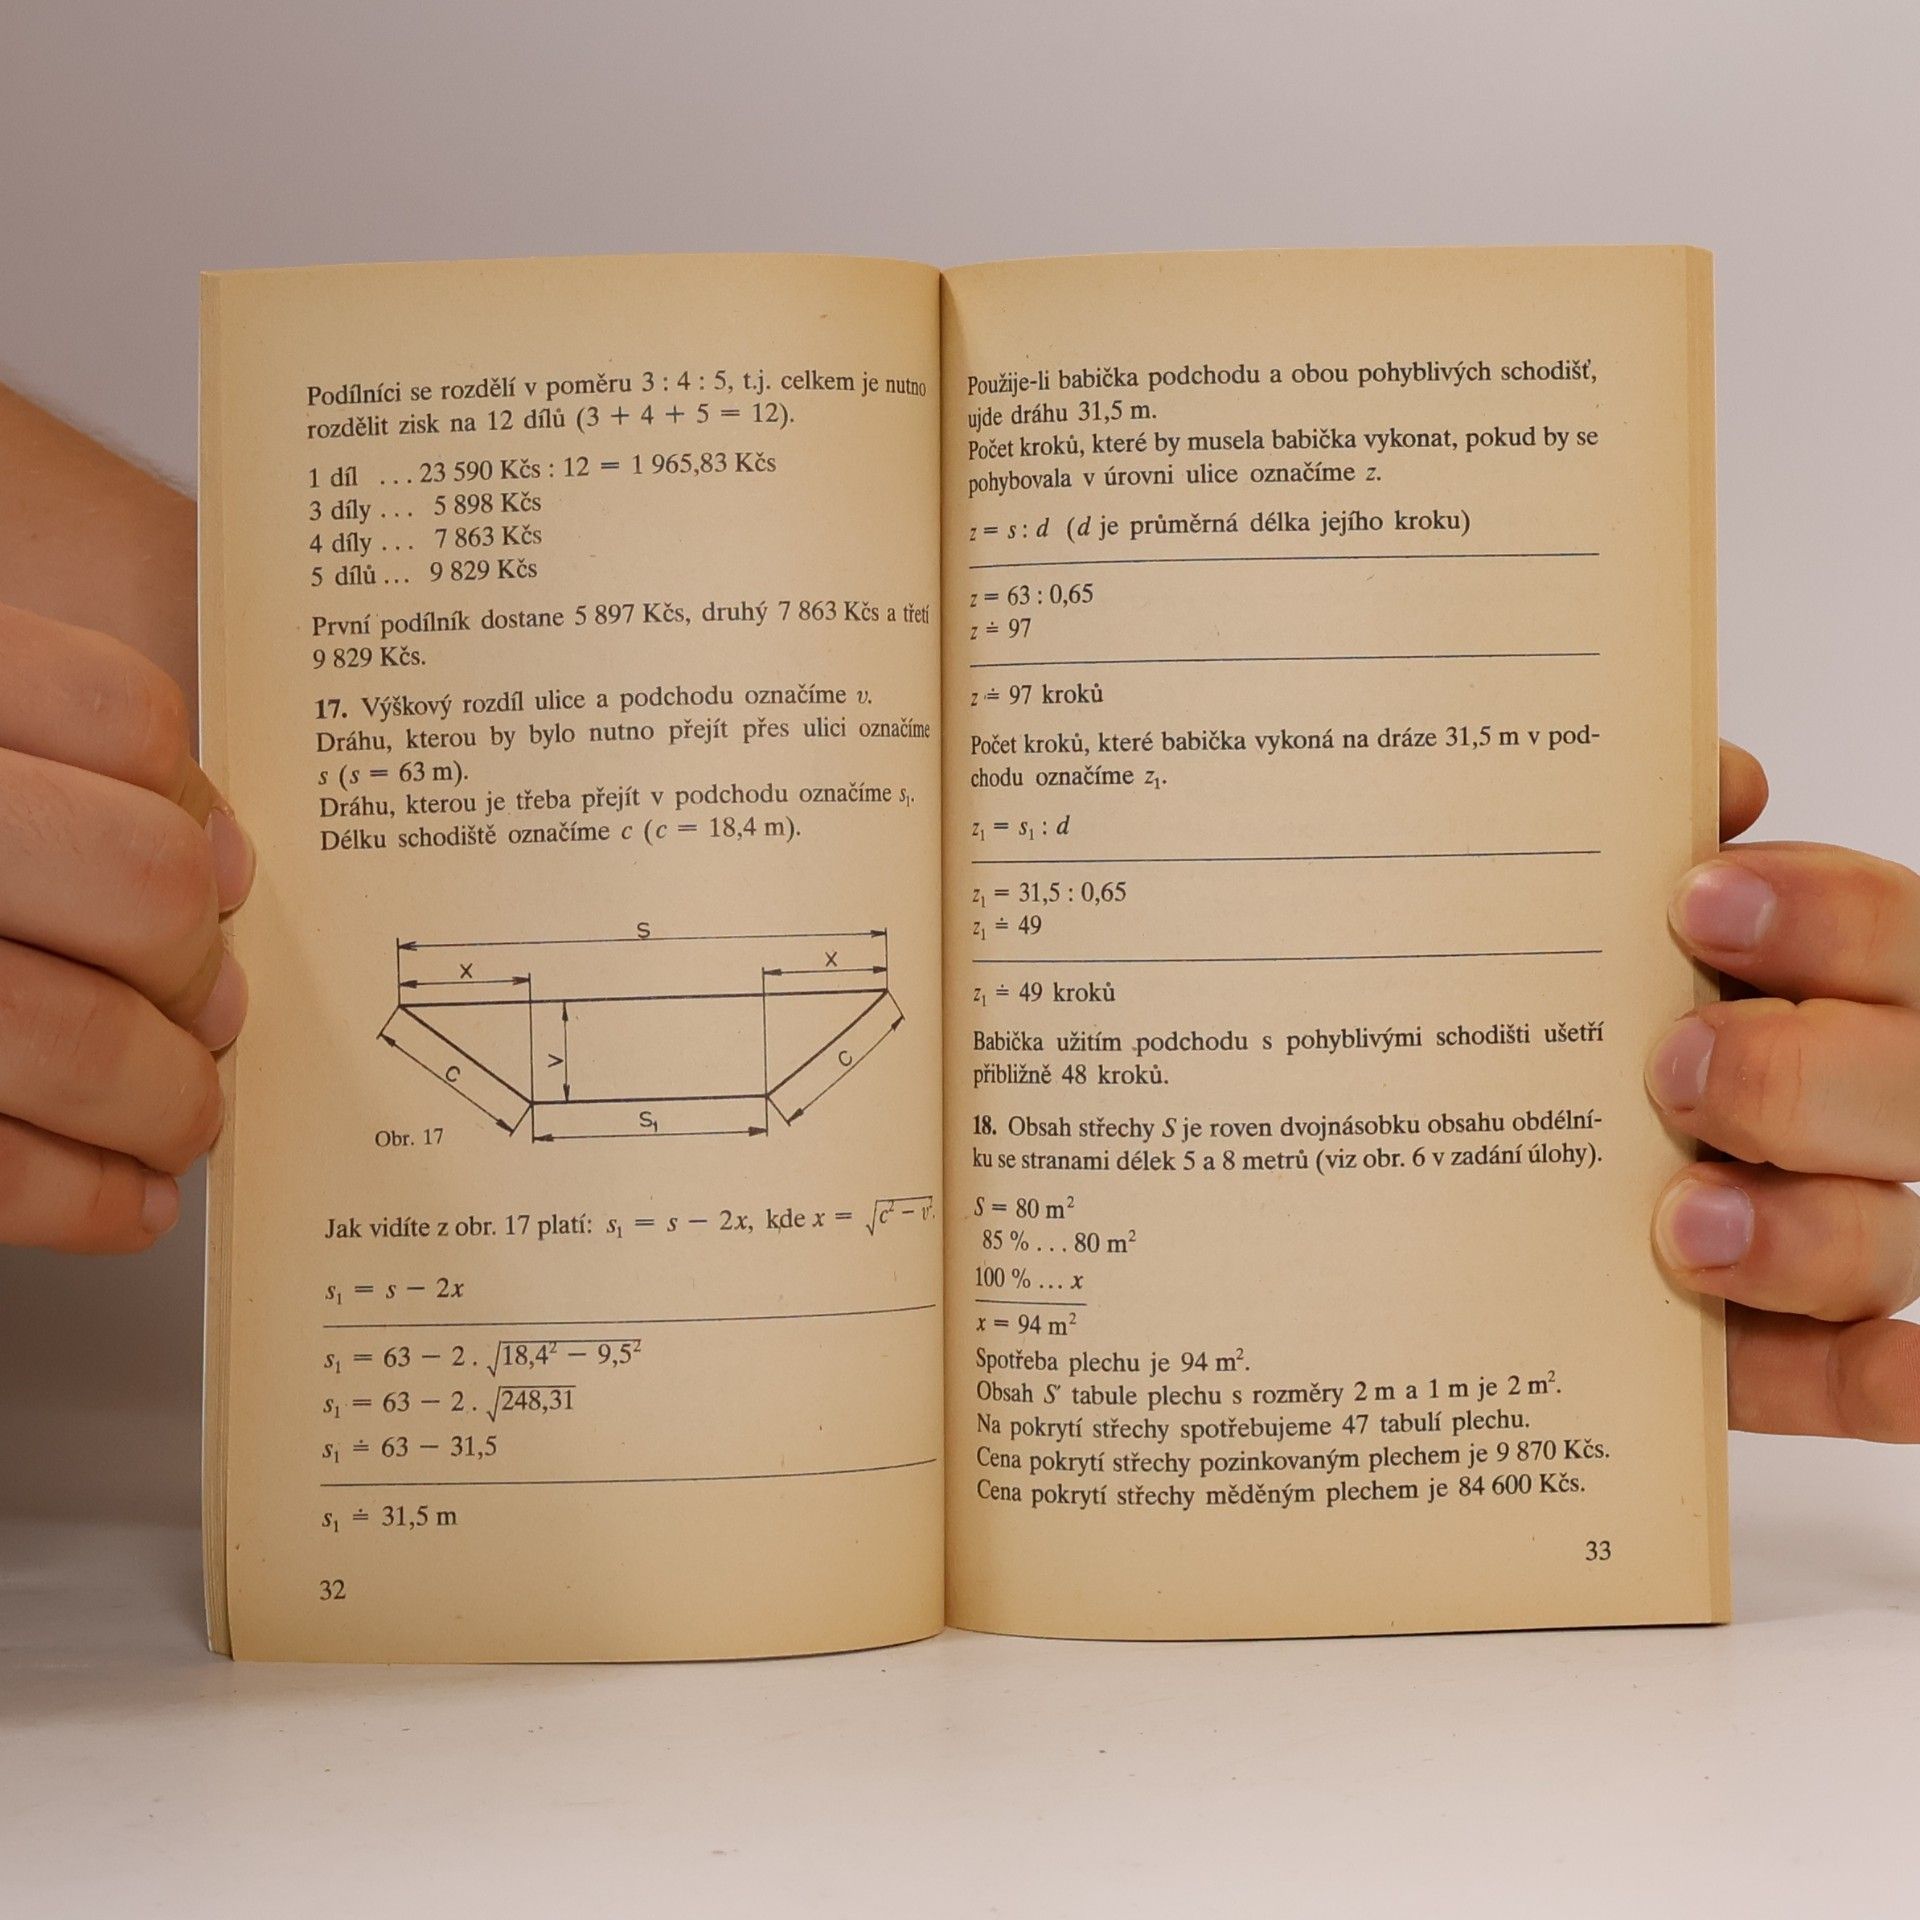 Podílníci se rozdělí v poměru 3 : 4 : 5, t.j. celkem je nutno
rozdělit zisk na 12 dílů (3 + 4 + 5 = 12).
1 díl ... 23 590 Kčs : 12 = 1 965,83 Kčs
3 díly ... 5 898 Kčs
4 díly ... 7 863 Kčs
5 dílů ... 9 829 Kčs
První podílník dostane 5 897 Kčs, druhý 7 863 Kčs a třetí
9 829 Kčs.
17. Výškový rozdíl ulice a podchodu označíme v.
Dráhu, kterou by bylo nutno přejít přes ulici označíme
s (s = 63 m).
Dráhu, kterou je třeba přejít v podchodu označíme s₁.
Délku schodiště označíme c (c = 18,4 m).
S
X X
V
C C
S₁
Obr. 17
Jak vidíte z obr. 17 platí: s₁ = s − 2x, kde x = √(c² − v²).
s₁ = s − 2x
s₁ = 63 − 2 . √(18,4² − 9,5²)
s₁ = 63 − 2 . √248,31
s₁ ≐ 63 − 31,5
s₁ ≐ 31,5 m
32
Použije-li babička podchodu a obou pohyblivých schodišť,
ujde dráhu 31,5 m.
Počet kroků, které by musela babička vykonat, pokud by se
pohybovala v úrovni ulice označíme z.
z = s : d (d je průměrná délka jejího kroku)
z = 63 : 0,65
z ≐ 97
z ≐ 97 kroků
Počet kroků, které babička vykoná na dráze 31,5 m v pod-
chodu označíme z₁.
z₁ = s₁ : d
z₁ = 31,5 : 0,65
z₁ ≐ 49
z₁ ≐ 49 kroků
Babička užitím podchodu s pohyblivými schodišti ušetří
přibližně 48 kroků.
18. Obsah střechy S je roven dvojnásobku obsahu obdélní-
ku se stranami délek 5 a 8 metrů (viz obr. 6 v zadání úlohy).
S = 80 m²
85 % ... 80 m²
100 % ... x
x = 94 m²
Spotřeba plechu je 94 m².
Obsah S′ tabule plechu s rozměry 2 m a 1 m je 2 m².
Na pokrytí střechy spotřebujeme 47 tabulí plechu.
Cena pokrytí střechy pozinkovaným plechem je 9 870 Kčs.
Cena pokrytí střechy měděným plechem je 84 600 Kčs.
33